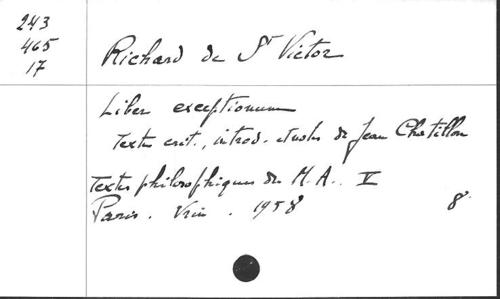 243
465
17
Richard de St Victor
Liber exceptionum
Texte crit., introd. et notes de Jean Chatillon
Textes philosophiques du M.A.. V
Paris. Vrin. 1958 8°